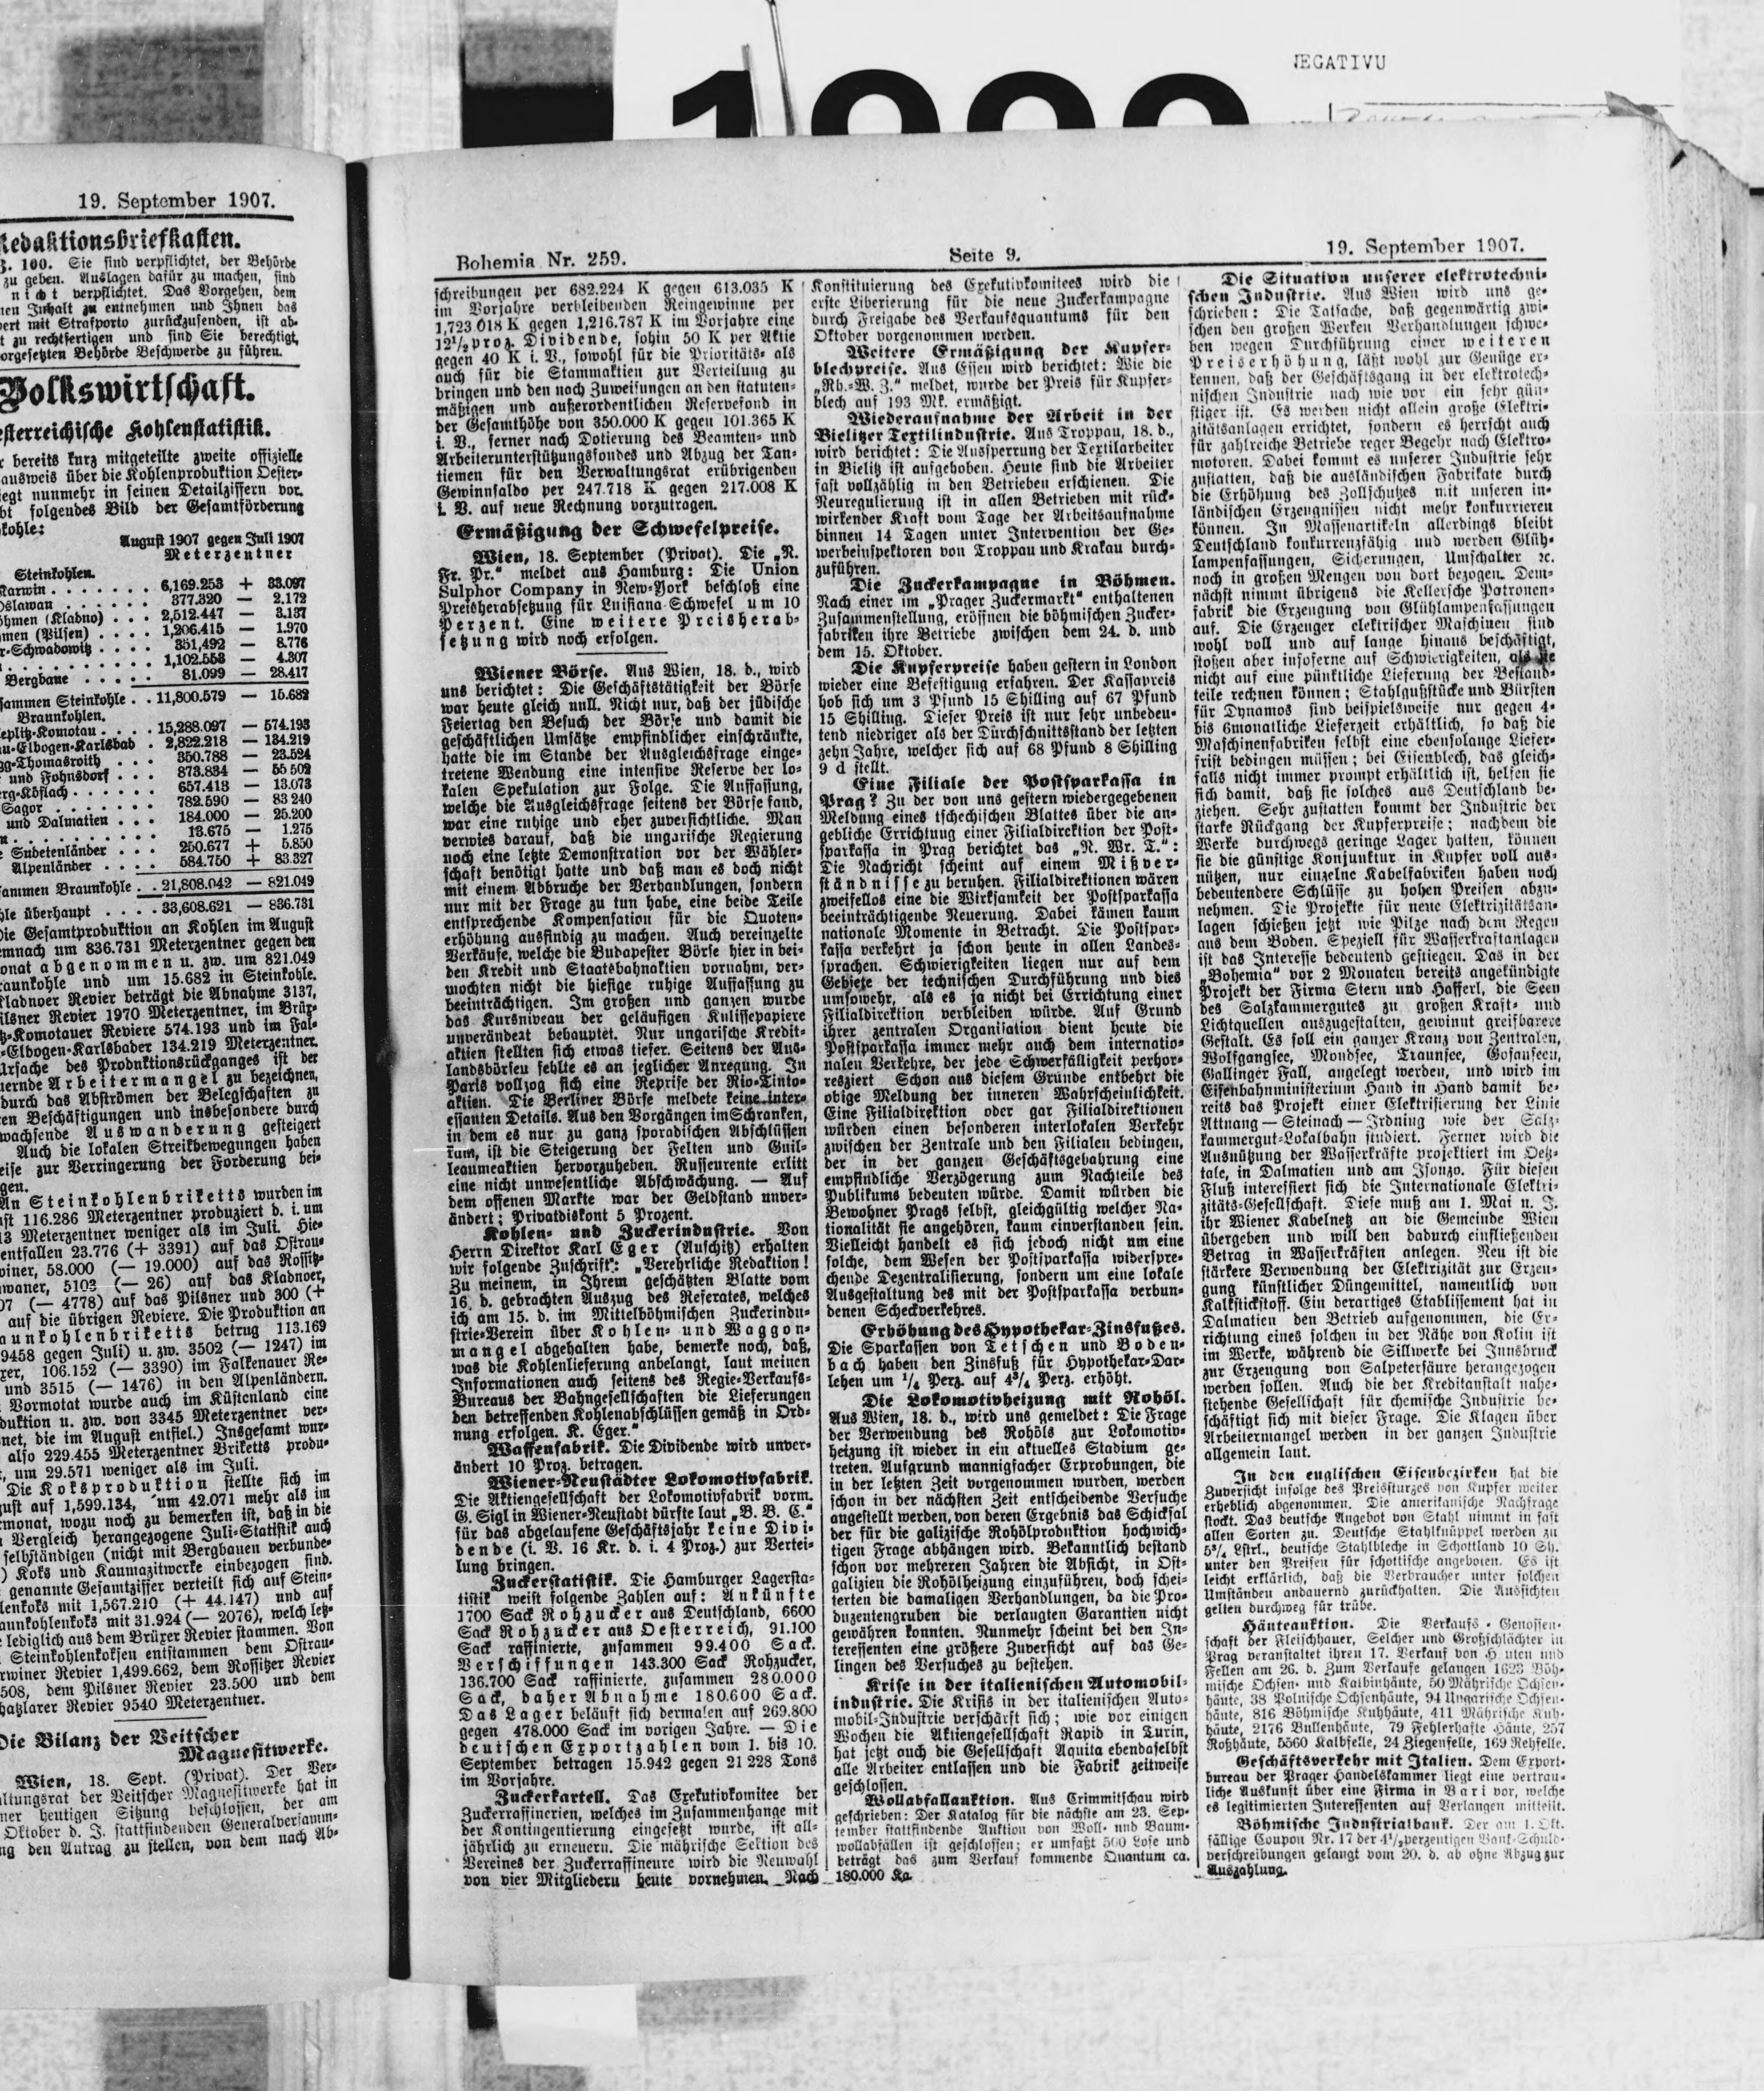 NEGATIVU
19. September 1907.
Redaktionsbriefkasten.
100. Sie sind verpflichtet, der Behörde
zu geben. Auslagen dafür zu machen, sind
nicht verpflichtet. Das Vorgehen, dem
Inhalt zu entnehmen und Ihnen das
mit Strafporto zurückzusenden, ist ab-
zu rechtfertigen und sind Sie berechtigt,
vorgesetzten Behörde Beschwerde zu führen.
Volkswirtschaft.
Kohlenstatistik.
bereits kurz mitgeteilte zweite offizielle
ausweis über die Kohlenproduktion Oester-
nunmehr in seinen Detailziffern vor.
folgendes Bild der Gesamtförderung
August 1907 gegen Juli 1907
Meterzentner
Steinkohlen.
Karwin 6,169.253 + 33.097
377.320 — 2.172
(Kladno) 2,512.447 — 3.137
(Pilsen) 1,206.415 — 1.970
Schwadowitz 351,492 — 8.776
1,102.553 — 4.307
Bergbaue 81.099 — 28.417
Steinkohle 11,800.579 — 15.682
Braunkohlen.
Komotau 15,288.097 — 574.193
Elbogen-Karlsbad 2,822.218 — 134.219
Thomasroith 350.788 — 23.524
und Fohnsdorf 873.834 — 55 502
Köflach 657.413 — 13.073
Sagor 782.590 — 83 240
und Dalmatien 184.000 — 25.200
13.675 — 1.275
Sudetenländer 250.677 + 5.850
Alpenländer 584.750 + 83.327
Braunkohle 21,808.042 — 821.049
überhaupt 33,608.621 — 836.731
Die Gesamtproduktion an Kohlen im August
um 836.731 Meterzentner gegen den
abgenommen u. zw. um 821.049
und um 15.682 in Steinkohle.
Kladnoer Revier beträgt die Abnahme 3137,
Pilsner Revier 1970 Meterzentner, im Brüx-
Komotauer Reviere 574.193 und im Fal-
Elbogen-Karlsbader 134.219 Meterzentner.
Ursache des Produktionsrückganges ist der
Arbeitermangel zu bezeichnen,
durch das Abströmen der Belegschaften zu
Beschäftigungen und insbesondere durch
Auswanderung gesteigert
Auch die lokalen Streikbewegungen haben
zur Verringerung der Forderung bei-
An Steinkohlenbriketts wurden im
116.286 Meterzentner produziert d. i. um
Meterzentner weniger als im Juli. Hie-
entfallen 23.776 (+ 3391) auf das Ostrau-
58.000 (— 19.000) auf das Rossitz-
5103 (— 26) auf das Kladnoer,
(— 4778) auf das Pilsner und 300 (+
auf die übrigen Reviere. Die Produktion an
Braunkohlenbriketts betrug 113.169
9458 gegen Juli) u. zw. 3502 (— 1247) im
106.152 (— 3390) im Falkenauer Re-
und 3515 (— 1476) in den Alpenländern.
Vormotat wurde auch im Küstenland eine
u. zw. von 3345 Meterzentner ver-
die im August entfiel.) Insgesamt wur-
also 229.455 Meterzentner Briketts produ-
um 29.571 weniger als im Juli.
Die Koksproduktion stellte sich im
auf 1,599.134, um 42.071 mehr als im
wozu noch zu bemerken ist, daß in die
Vergleich herangezogene Juli-Statistik auch
selbständigen (nicht mit Bergbauen verbunde-
Koks und Kaumazitwerke einbezogen sind.
genannte Gesamtziffer verteilt sich auf Stein-
mit 1,567.210 (+ 44.147) und auf
mit 31.924 (— 2076), welch letz-
lediglich aus dem Brüxer Revier stammen. Von
Steinkohlenkoksen entstammen dem Ostrau-
Revier 1,499.662, dem Rossitzer Revier
508, dem Pilsner Revier 23.500 und dem
Revier 9540 Meterzentner.
Die Bilanz der Veitscher
Magnesitwerke.
Wien, 18. Sept. (Privat). Der Ver-
der Veitscher Magnesitwerke hat in
heutigen Sitzung beschlossen, der am
Oktober d. J. stattfindenden Generalversamm-
den Antrag zu stellen, von dem nach Ab-
Bohemia Nr. 259. Seite 9. 19. September 1907.
schreibungen per 682.224 K gegen 613.035 K
im Vorjahre verbleibenden Reingewinne per
1,723 018 K gegen 1,216.787 K im Vorjahre eine
12½proz. Dividende, sohin 50 K per Aktie
gegen 40 K i. V., sowohl für die Prioritäts- als
auch für die Stammaktien zur Verteilung zu
bringen und den nach Zuweisungen an den statuten-
mäßigen und außerordentlichen Reservefond in
der Gesamthöhe von 350.000 K gegen 101.365 K
i. V., ferner nach Dotierung des Beamten- und
Arbeiterunterstützungsfondes und Abzug der Tan-
tiemen für den Verwaltungsrat erübrigenden
Gewinnsaldo per 247.718 K gegen 217.008 K
i. V. auf neue Rechnung vorzutragen.
Ermäßigung der Schwefelpreise.
Wien, 18. September (Privat). Die „N.
Fr. Pr." meldet aus Hamburg: Die Union
Sulphor Company in New-York beschloß eine
Preisherabsetzung für Luisiana-Schwefel um 10
Perzent. Eine weitere Preisherab-
setzung wird noch erfolgen.
Wiener Börse. Aus Wien, 18. d., wird
uns berichtet: Die Geschäftstätigkeit der Börse
war heute gleich null. Nicht nur, daß der jüdische
Feiertag den Besuch der Börse und damit die
geschäftlichen Umsätze empfindlicher einschränkte,
hatte die im Stande der Ausgleichsfrage einge-
tretene Wendung eine intensive Reserve der lo-
kalen Spekulation zur Folge. Die Auffassung,
welche die Ausgleichsfrage seitens der Börse fand,
war eine ruhige und eher zuversichtliche. Man
verwies darauf, daß die ungarische Regierung
noch eine letzte Demonstration vor der Wähler-
schaft benötigt hatte und daß man es doch nicht
mit einem Abbruche der Verhandlungen, sondern
nur mit der Frage zu tun habe, eine beide Teile
entsprechende Kompensation für die Quoten-
erhöhung ausfindig zu machen. Auch vereinzelte
Verkäufe, welche die Budapester Börse hier in bei-
den Kredit und Staatsbahnaktien vornahm, ver-
mochten nicht die hiesige ruhige Auffassung zu
beeinträchtigen. Im großen und ganzen wurde
das Kursniveau der geläufigen Kulissepapiere
unverändeat behauptet. Nur ungarische Kredit-
aktien stellten sich etwas tiefer. Seitens der Aus-
landsbörseu fehlte es an jeglicher Anregung. In
Paris vollzog sich eine Reprise der Rio-Tinto-
aktien. Die Berliner Börse meldete keine inter-
essanten Details. Aus den Vorgängen im Schranken,
in dem es nur zu ganz sporadischen Abschlüssen
kam, ist die Steigerung der Felten und Guil-
leaumeaktien hervorzuheben. Russeurente erlitt
eine nicht unwesentliche Abschwächung. — Auf
dem offenen Markte war der Geldstand unver-
ändert; Privatdiskont 5 Prozent.
Kohlen- und Zuckerindustrie. Von
Herrn Direktor Karl Eger (Auschitz) erhalten
wir folgende Zuschrift: „Verehrliche Redaktion!
Zu meinem, in Ihrem geschätzten Blatte vom
16. d. gebrachten Auszug des Referates, welches
ich am 15. d. im Mittelböhmischen Zuckerindu-
strie-Verein über Kohlen- und Waggon-
mangel abgehalten habe, bemerke noch, daß,
was die Kohlenlieferung anbelangt, laut meinen
Informationen auch seitens des Regie-Verkaufs-
Bureaus der Bahngesellschaften die Lieferungen
den betreffenden Kohlenabschlüssen gemäß in Ord-
nung erfolgen. K. Eger."
Waffenfabrik. Die Dividende wird unver-
ändert 10 Proz. betragen.
Wiener-Neustädter Lokomotivfabrik.
Die Aktiengesellschaft der Lokomotivfabrik vorm.
G. Sigl in Wiener-Neustadt dürfte laut „B. B. C."
für das abgelaufene Geschäftsjahr keine Divi-
dende (i. V. 16 Kr. d. i. 4 Proz.) zur Vertei-
lung bringen.
Zuckerstatistik. Die Hamburger Lagersta-
tistik weist folgende Zahlen auf: Ankünfte
1700 Sack Rohzucker aus Deutschland, 6600
Sack Rohzucker aus Oesterreich, 91.100
Sack raffinierte, zusammen 99.400 Sack.
Verschiffungen 143.300 Sack Rohzucker,
136.700 Sack raffinierte, zusammen 280.000
Sack, daher Abnahme 180.600 Sack.
Das Lager beläuft sich dermalen auf 269.800
gegen 478.000 Sack im vorigen Jahre. — Die
deutschen Exportzahlen vom 1. bis 10.
September betragen 15.942 gegen 21 228 Tons
im Vorjahre.
Zuckerkartell. Das Exekutivkomitee der
Zuckerraffinerien, welches im Zusammenhange mit
der Kontingentierung eingesetzt wurde, ist all-
jährlich zu erneuern. Die mährische Sektion des
Vereines der Zuckerraffineure wird die Neuwahl
von vier Mitgliederu heute vornehmen. Nach
Konstituierung des Exekutivkomitees wird die
erste Liberierung für die neue Zuckerkampagne
durch Freigabe des Verkaufsquantums für den
Oktober vorgenommen werden.
Weitere Ermäßigung der Kupfer-
blechpreise. Aus Essen wird berichtet: Wie die
„Rh.-W. Z." meldet, wurde der Preis für Kupfer-
blech auf 193 Mk. ermäßigt.
Wiederaufnahme der Arbeit in der
Bielitzer Textilindustrie. Aus Troppau, 18. d.,
wird berichtet: Die Aussperrung der Textilarbeiter
in Bielitz ist aufgehoben. Heute sind die Arbeiter
fast vollzählig in den Betrieben erschienen. Die
Neuregulierung ist in allen Betrieben mit rück-
wirkender Kraft vom Tage der Arbeitsaufnahme
binnen 14 Tagen unter Intervention der Ge-
werbeinspektoren von Troppau und Krakau durch-
zuführen.
Die Zuckerkampagne in Böhmen.
Nach einer im „Prager Zuckermarkt" enthaltenen
Zusammenstellung, eröffnen die böhmischen Zucker-
fabriken ihre Betriebe zwischen dem 24. d. und
dem 15. Oktober.
Die Kupferpreise haben gestern in London
wieder eine Befestigung erfahren. Der Kassapreis
hob sich um 3 Pfund 15 Shilling auf 67 Pfund
15 Shilling. Dieser Preis ist nur sehr unbedeu-
tend niedriger als der Durchschnittsstand der letzten
zehn Jahre, welcher sich auf 68 Pfund 8 Shilling
9 d stellt.
Eine Filiale der Postsparkassa in
Prag? Zu der von uns gestern wiedergegebenen
Meldung eines tschechischen Blattes über die an-
gebliche Errichtung einer Filialdirektion der Post-
sparkassa in Prag berichtet das „N. Wr. T.":
Die Nachricht scheint auf einem Mißver-
ständnisse zu beruhen. Filialdirektionen wären
zweifellos eine die Wirksamkeit der Postsparkassa
beeinträchtigende Neuerung. Dabei kämen kaum
nationale Momente in Betracht. Die Postspar-
kassa verkehrt ja schon heute in allen Landes-
sprachen. Schwierigkeiten liegen nur auf dem
Gebiete der technischen Durchführung und dies
umsowehr, als es ja nicht bei Errichtung einer
Filialdirektion verbleiben würde. Auf Grund
ihrer zentralen Organisation dient heute die
Postsparkassa immer mehr auch dem internatio-
nalen Verkehre, der jede Schwerfälligkeit perhor-
resziert Schon aus diesem Grunde entbehrt die
obige Meldung der inneren Wahrscheinlichkeit.
Eine Filialdirektion oder gar Filialdirektionen
würden einen besonderen interlokalen Verkehr
zwischen der Zentrale und den Filialen bedingen,
der in der ganzen Geschäftsgebahrung eine
empfindliche Verzögerung zum Nachteile des
Publikums bedeuten würde. Damit würden die
Bewohner Prags selbst, gleichgültig welcher Na-
tionalität sie angehören, kaum einverstanden sein.
Vielleicht handelt es sich jedoch nicht um eine
solche, dem Wesen der Postsparkassa widerspre-
chende Dezentralisierung, sondern um eine lokale
Ausgestaltung des mit der Postsparkassa verbun-
denen Scheckverkehres.
Erhöhung des Hypothekar-Zinsfußes.
Die Sparkassen von Tetschen und Boden-
bach haben den Zinsfuß für Hypothekar-Dar-
lehen um ¼ Perz. auf 4¾ Perz. erhöht.
Die Lokomotivheizung mit Rohöl.
Aus Wien, 18. d., wird uns gemeldet: Die Frage
der Verwendung des Rohöls zur Lokomotiv-
heizung ist wieder in ein aktuelles Stadium ge-
treten. Aufgrund mannigfacher Erprobungen, die
in der letzten Zeit vorgenommen wurden, werden
schon in der nächsten Zeit entscheidende Versuche
angestellt werden, von deren Ergebnis das Schicksal
der für die galizische Rohölproduktion hochwich-
tigen Frage abhängen wird. Bekanntlich bestand
schon vor mehreren Jahren die Absicht, in Ost-
galizien die Rohölheizung einzuführen, doch schei-
terten die damaligen Verhandlungen, da die Pro-
duzentengruben die verlaugten Garantien nicht
gewähren konnten. Nunmehr scheint bei den In-
teressenten eine größere Zuversicht auf das Ge-
lingen des Versuches zu bestehen.
Krise in der italienischen Automobil-
industrie. Die Krisis in der italienischen Auto-
mobil-Industrie verschärft sich; wie vor einigen
Wochen die Aktiengesellschaft Rapid in Turin,
hat jetzt auch die Gesellschaft Aquila ebendaselbst
alle Arbeiter entlassen und die Fabrik zeitweise
geschlossen.
Wollabfallauktion. Aus Crimmitschau wird
geschrieben: Der Katalog für die nächste am 23. Sep-
tember stattfindende Auktion von Woll- und Baum-
wollabfällen ist geschlossen; er umfaßt 500 Lose und
beträgt das zum Verkauf kommende Quantum ca.
180.000 Kg.
Die Situation unserer elektrotechni-
schen Industrie. Aus Wien wird uns ge-
schrieben: Die Tatsache, daß gegenwärtig zwi-
schen den großen Werken Verhandlungen schwe-
ben wegen Durchführung einer weiteren
Preiserhöhung, läßt wohl zur Genüge er-
kennen, daß der Geschäftsgang in der elektrotech-
nischen Industrie nach wie vor ein sehr gün-
stiger ist. Es werden nicht allein große Elektri-
zitätsanlagen errichtet, sondern es herrscht auch
für zahlreiche Betriebe reger Begehr nach Elektro-
motoren. Dabei kommt es unserer Industrie sehr
zustatten, daß die ausländischen Fabrikate durch
die Erhöhung des Zollschutzes mit unseren in-
ländischen Erzeugnissen nicht mehr konkurrieren
können. In Massenartikeln allerdings bleibt
Deutschland konkurrenzfähig und werden Glüh-
lampenfassungen, Sicherungen, Umschalter ꝛc.
noch in großen Mengen von dort bezogen. Dem-
nächst nimmt übrigens die Kellersche Patronen-
fabrik die Erzeugung von Glühlampenfassungen
auf. Die Erzeuger elektrischer Maschinen sind
wohl voll und auf lange hinaus beschäftigt,
stoßen aber insoferne auf Schwierigkeiten, als sie
nicht auf eine pünktliche Lieferung der Bestand-
teile rechnen können; Stahlgußstücke und Bürsten
für Dynamos sind beispielsweise nur gegen 4-
bis 6monatliche Lieferzeit erhältlich, so daß die
Maschinenfabriken selbst eine ebensolange Liefer-
frist bedingen müssen; bei Eisenblech, das gleich-
falls nicht immer prompt erhältlich ist, helfen sie
sich damit, daß sie solches aus Deutschland be-
ziehen. Sehr zustatten kommt der Industrie der
starke Rückgang der Kupferpreise; nachdem die
Werke durchwegs geringe Lager hatten, können
sie die günstige Konjunktur in Kupfer voll aus-
nützen, nur einzelne Kabelfabriken haben noch
bedeutendere Schlüsse zu hohen Preisen abzu-
nehmen. Die Projekte für neue Elektrizitätsan-
lagen schießen jetzt wie Pilze nach dem Regen
aus dem Boden. Speziell für Wasserkraftanlagen
ist das Interesse bedeutend gestiegen. Das in der
„Bohemia" vor 2 Monaten bereits angekündigte
Projekt der Firma Stern und Hafferl, die Seen
des Salzkammergutes zu großen Kraft- und
Lichtquellen auszugestalten, gewinnt greifbarere
Gestalt. Es soll ein ganzer Kranz von Zentralen,
Wolfgangsee, Mondsee, Traunsee, Gosauseen,
Gallinger Fall, angelegt werden, und wird im
Eisenbahnministerium Hand in Hand damit be-
reits das Projekt einer Elektrisierung der Linie
Attnang—Steinach—Irdning wie der Salz-
kammergut-Lokalbahn studiert. Ferner wird die
Ausnützung der Wasserkräfte projektiert im Oetz-
tale, in Dalmatien und am Isonzo. Für diesen
Fluß interessiert sich die Internationale Elektri-
zitäts-Gesellschaft. Diese muß am 1. Mai n. J.
ihr Wiener Kabelnetz an die Gemeinde Wien
übergeben und will den dadurch einfließenden
Betrag in Wasserkräften anlegen. Neu ist die
stärkere Verwendung der Elektrizität zur Erzeu-
gung künstlicher Düngemittel, namentlich von
Kalkstickstoff. Ein derartiges Etablissement hat in
Dalmatien den Betrieb aufgenommen, die Er-
richtung eines solchen in der Nähe von Kolin ist
im Werke, während die Sillwerke bei Innsbruck
zur Erzeugung von Salpetersäure herangezogen
werden sollen. Auch die der Kreditanstalt nahe-
stehende Gesellschaft für chemische Industrie be-
schäftigt sich mit dieser Frage. Die Klagen über
Arbeitermangel werden in der ganzen Industrie
allgemein laut.
In den englischen Eisenbezirken hat die
Zuversicht infolge des Preissturzes von Kupfer weiter
erheblich abgenommen. Die amerikanische Nachfrage
stockt. Das deutsche Angebot von Stahl nimmt in fast
allen Sorten zu. Deutsche Stahlknüppel werden zu
5⅜ Lstrl., deutsche Stahlbleche in Schottland 10 Sh.
unter den Preisen für schottische angeboten. Es ist
leicht erklärlich, daß die Verbraucher unter solchen
Umständen andauernd zurückhalten. Die Aussichten
gelten durchweg für trübe.
Häuteauktion. Die Verkaufs-Genossen-
schaft der Fleischhauer, Selcher und Großschlächter in
Prag veranstaltet ihren 17. Verkauf von H uten und
Fellen am 26. d. Zum Verkaufe gelangen 1623 Böh-
mische Ochsen- und Kalbinhäute, 50 Mährische Ochsen-
häute, 38 Polnische Ochsenhäute, 94 Ungarische Ochsen-
häute, 816 Böhmische Kuhhäute, 411 Mährische Kuh-
häute, 2176 Bullenhäute, 79 Fehlerhafte Häute, 257
Roßhäute, 5560 Kalbfelle, 24 Ziegenfelle, 169 Rehfelle.
Geschäftsverkehr mit Italien. Dem Export-
bureau der Prager Handelskammer liegt eine vertrau-
liche Auskunft über eine Firma in Bari vor, welche
es legitimierten Interessenten auf Verlangen mitteilt.
Böhmische Industrialbank. Der am 1. Okt.
fällige Coupon Nr. 17 der 4½perzentigen Bank-Schuld-
verschreibungen gelangt vom 20. d. ab ohne Abzug zur
Auszahlung.